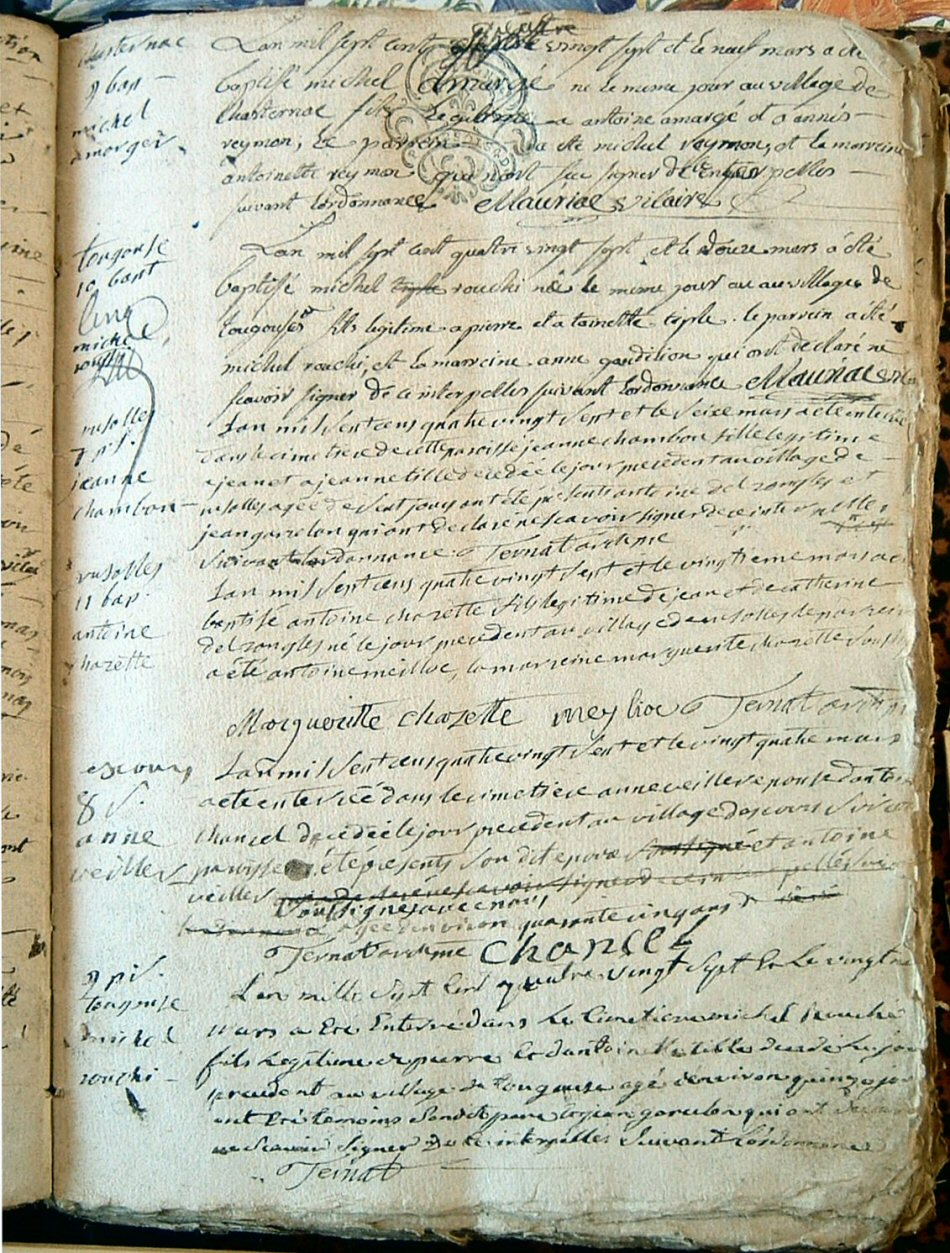 chasternac
9 bap
michel
amorger
L'an mil sept cent quatre vingt sept et le neuf mars a été
baptisé michel amargé né le meme jour au village de
Chasternac fils legitime a antoine amargé et a annés
reymon, le parrein a été michel reymon, et la marreine
antoinette reymon qui n'ont sçu signer de interpelles
suivant l'ordonnance Mauriac vilaire
tougouse
10 bapt
michel
rouchi
L'an mil sept cent quatre vingt sept et le douze mars a été
baptisé michel rouchi né le meme jour au villages de
tougouses fils legitime a pierre et a toinette tible le parrein a été
michel rouchi, et la marreine anne gaudition qui ont declaré ne
scavoir signer de ce interpelles suivant l'ordonnance Mauriac
rusolles
7 pt.
jeanne
chambon
L'an mil sept cens quatre vingt sept et le seize mars a ete enterrée
dans le cimetiere de cette paroisse jeanne chambon fille legitime
a jean et a jeanne tille decedée le jour precedent au village de
rusolles agée de sept jours ont été presents antoine delzangles et
jean garrelon qui ont declaré ne scavoir signer de ce interpelles
suivant l'ordonnance Ternat
rusolles
11 bap.
antoine
chazette
L'an mil sept cens quatre vingt sept et le vingtieme mars a été
baptisé antoine chazette fils legitime de jean et de catherine
delzangles né le jour precedent au village de rusolles le parrein
a été antoine meilloc, la marreine marguerite chazette
Marguerite chazette meylioc Ternat
escours
8 s.
anne
veilles
L'an mil sept cens quatre vingt sept et le vingt quatre mars
a ete enterrée dans le cimetiere anne veilles epouse d'antoine
chancel decedée le jour precedent au village d'escours
paroisse été présents son dit epoux soussigné et antoine
veilles
soussignes avec nous
agée d'environ quarante cinq ans
Ternat chancel
9 pt.
tougouse
michel
rouchi
L'an mille sept cent quatre vingt sept et le vingt
mars a été Enterré dans le Cimetiere michel Rouché
fils Legitime a pierre et d'antoinette tible decedé le jour
precedent au village de tougouse agé d'environ quinze jours
ont été temoins son dit pere et jean garrelon qui ont declaré
ne scavoir signer de ce interpelles suivant l'ordonnance
Ternat